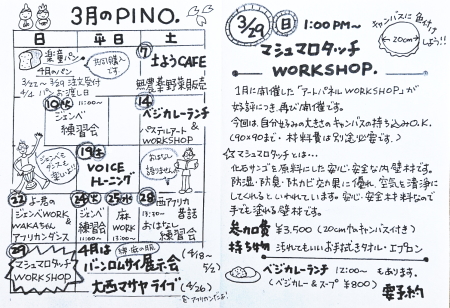 3月のPINO.
日 平日 土
楽童パン
4月のパン
3/22~3/29 注文受付
4/2 パンお渡し日
共同購入
です
⑦
土ようCAFE
無農薬野菜販売
⑩(火) 11:00~
ジェンベ
練習会
⑭
ベジカレーランチ
パステルアート
&WORKSHOP
⑲(木)
VOICE
トレーニング
おはなし
語りましょ
㉒ よっ恵の
ジェンベWORK &
WAKAちゃん
アフリカンダンス
㉔(火)
ジェンベ
練習会
11:00~
㉕(水)
麻
WORK
㉘
西アフリカ
昔話
おはなし
練習会
㉙
マシュマロタッチ
WORKSHOP
4月は
バーンロムサイ展示会
(4/18~
5/2)
大西マサヤライブ
(4/26)
3/29 (日) 1:00PM~
キャンバスに色付け
しよう!!
20cm
マシュマロタッチ
WORKSHOP.
1月に開催した「アートパネルWORKSHOP」が
好評につき、再び開催です。
今回は、自分好みの大きさのキャンバスの持ち込みO.K.
(90×90まで・材料費は別途必要です。)
☆マシュマロタッチとは…
化石サンゴを原料にした安心・安全な内壁材です。
防湿・防臭・防カビ効果に優れ、空気を清浄に
してくれるといわれています。安心・安全素材料なので
手でも塗れる壁材です。
参加費 ¥3,500 (20cmキャンバス付き)
持ち物 汚れてもいいお手ふきタオル・エプロン
ベジカレーランチ 12:00~ もあります。
(ベジカレー&スープ ¥800)
要予約